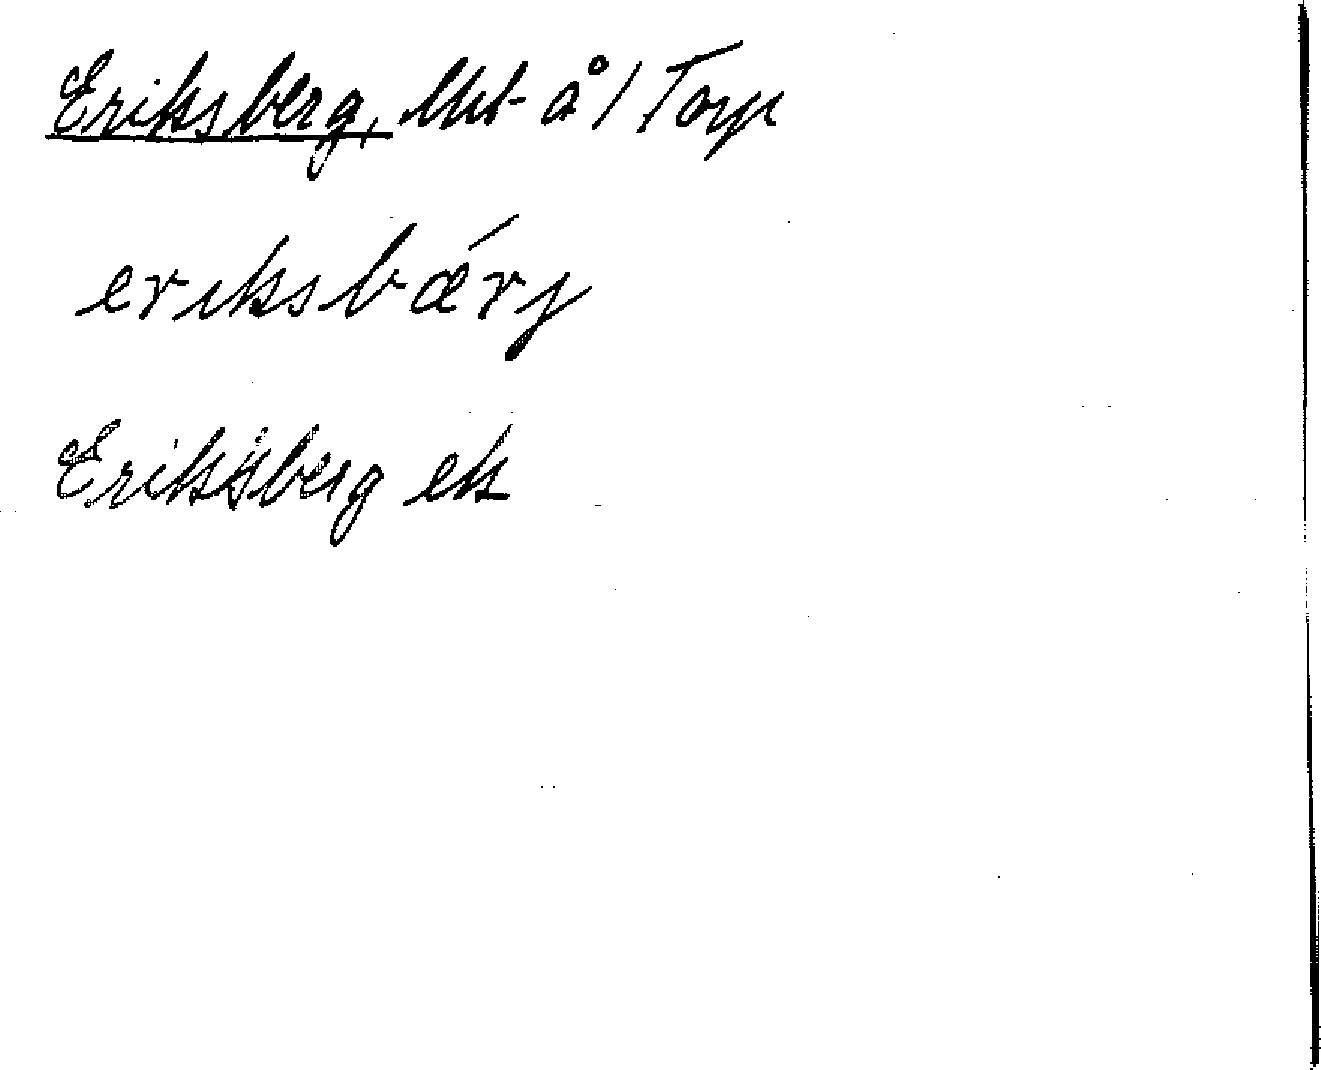 Eriksberg, lht å 1 Torp
eriksbǽrj
Eriksberg ek